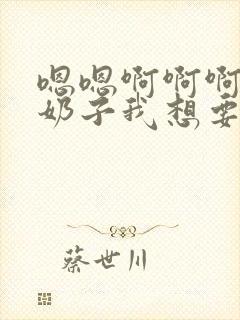 嗯嗯啊啊啊
奶子我想要
蔡世川